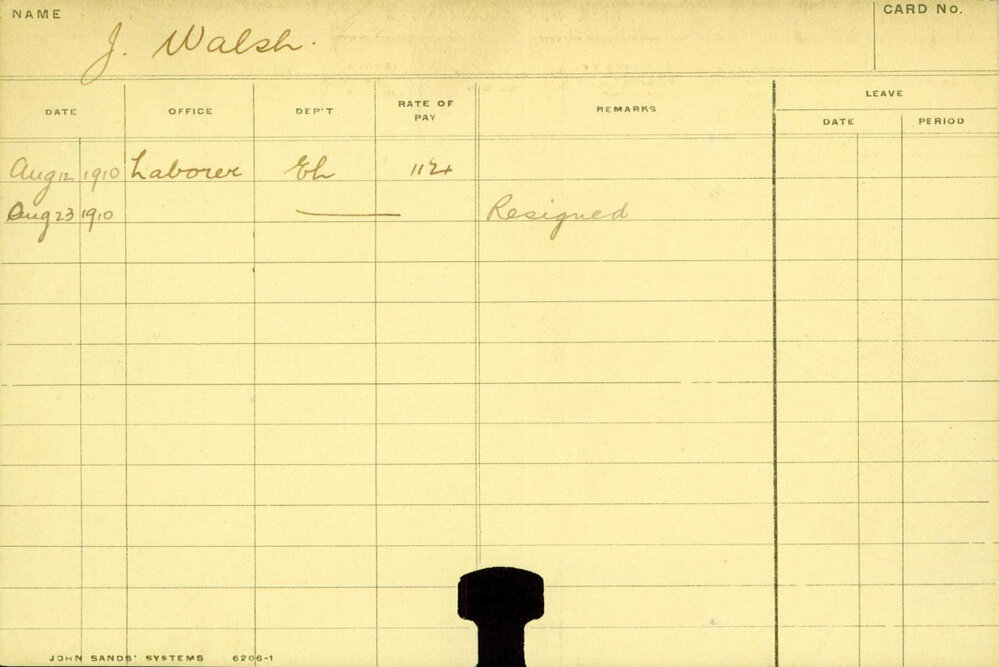 NAME
J. Walsh.
CARD NO.
DATE OFFICE DEP'T RATE OF PAY REMARKS LEAVE
DATE PERIOD
Aug 12 1910 Laborer
Aug 23 1910 Resigned
JOHN SANDS' SYSTEMS 6206-1